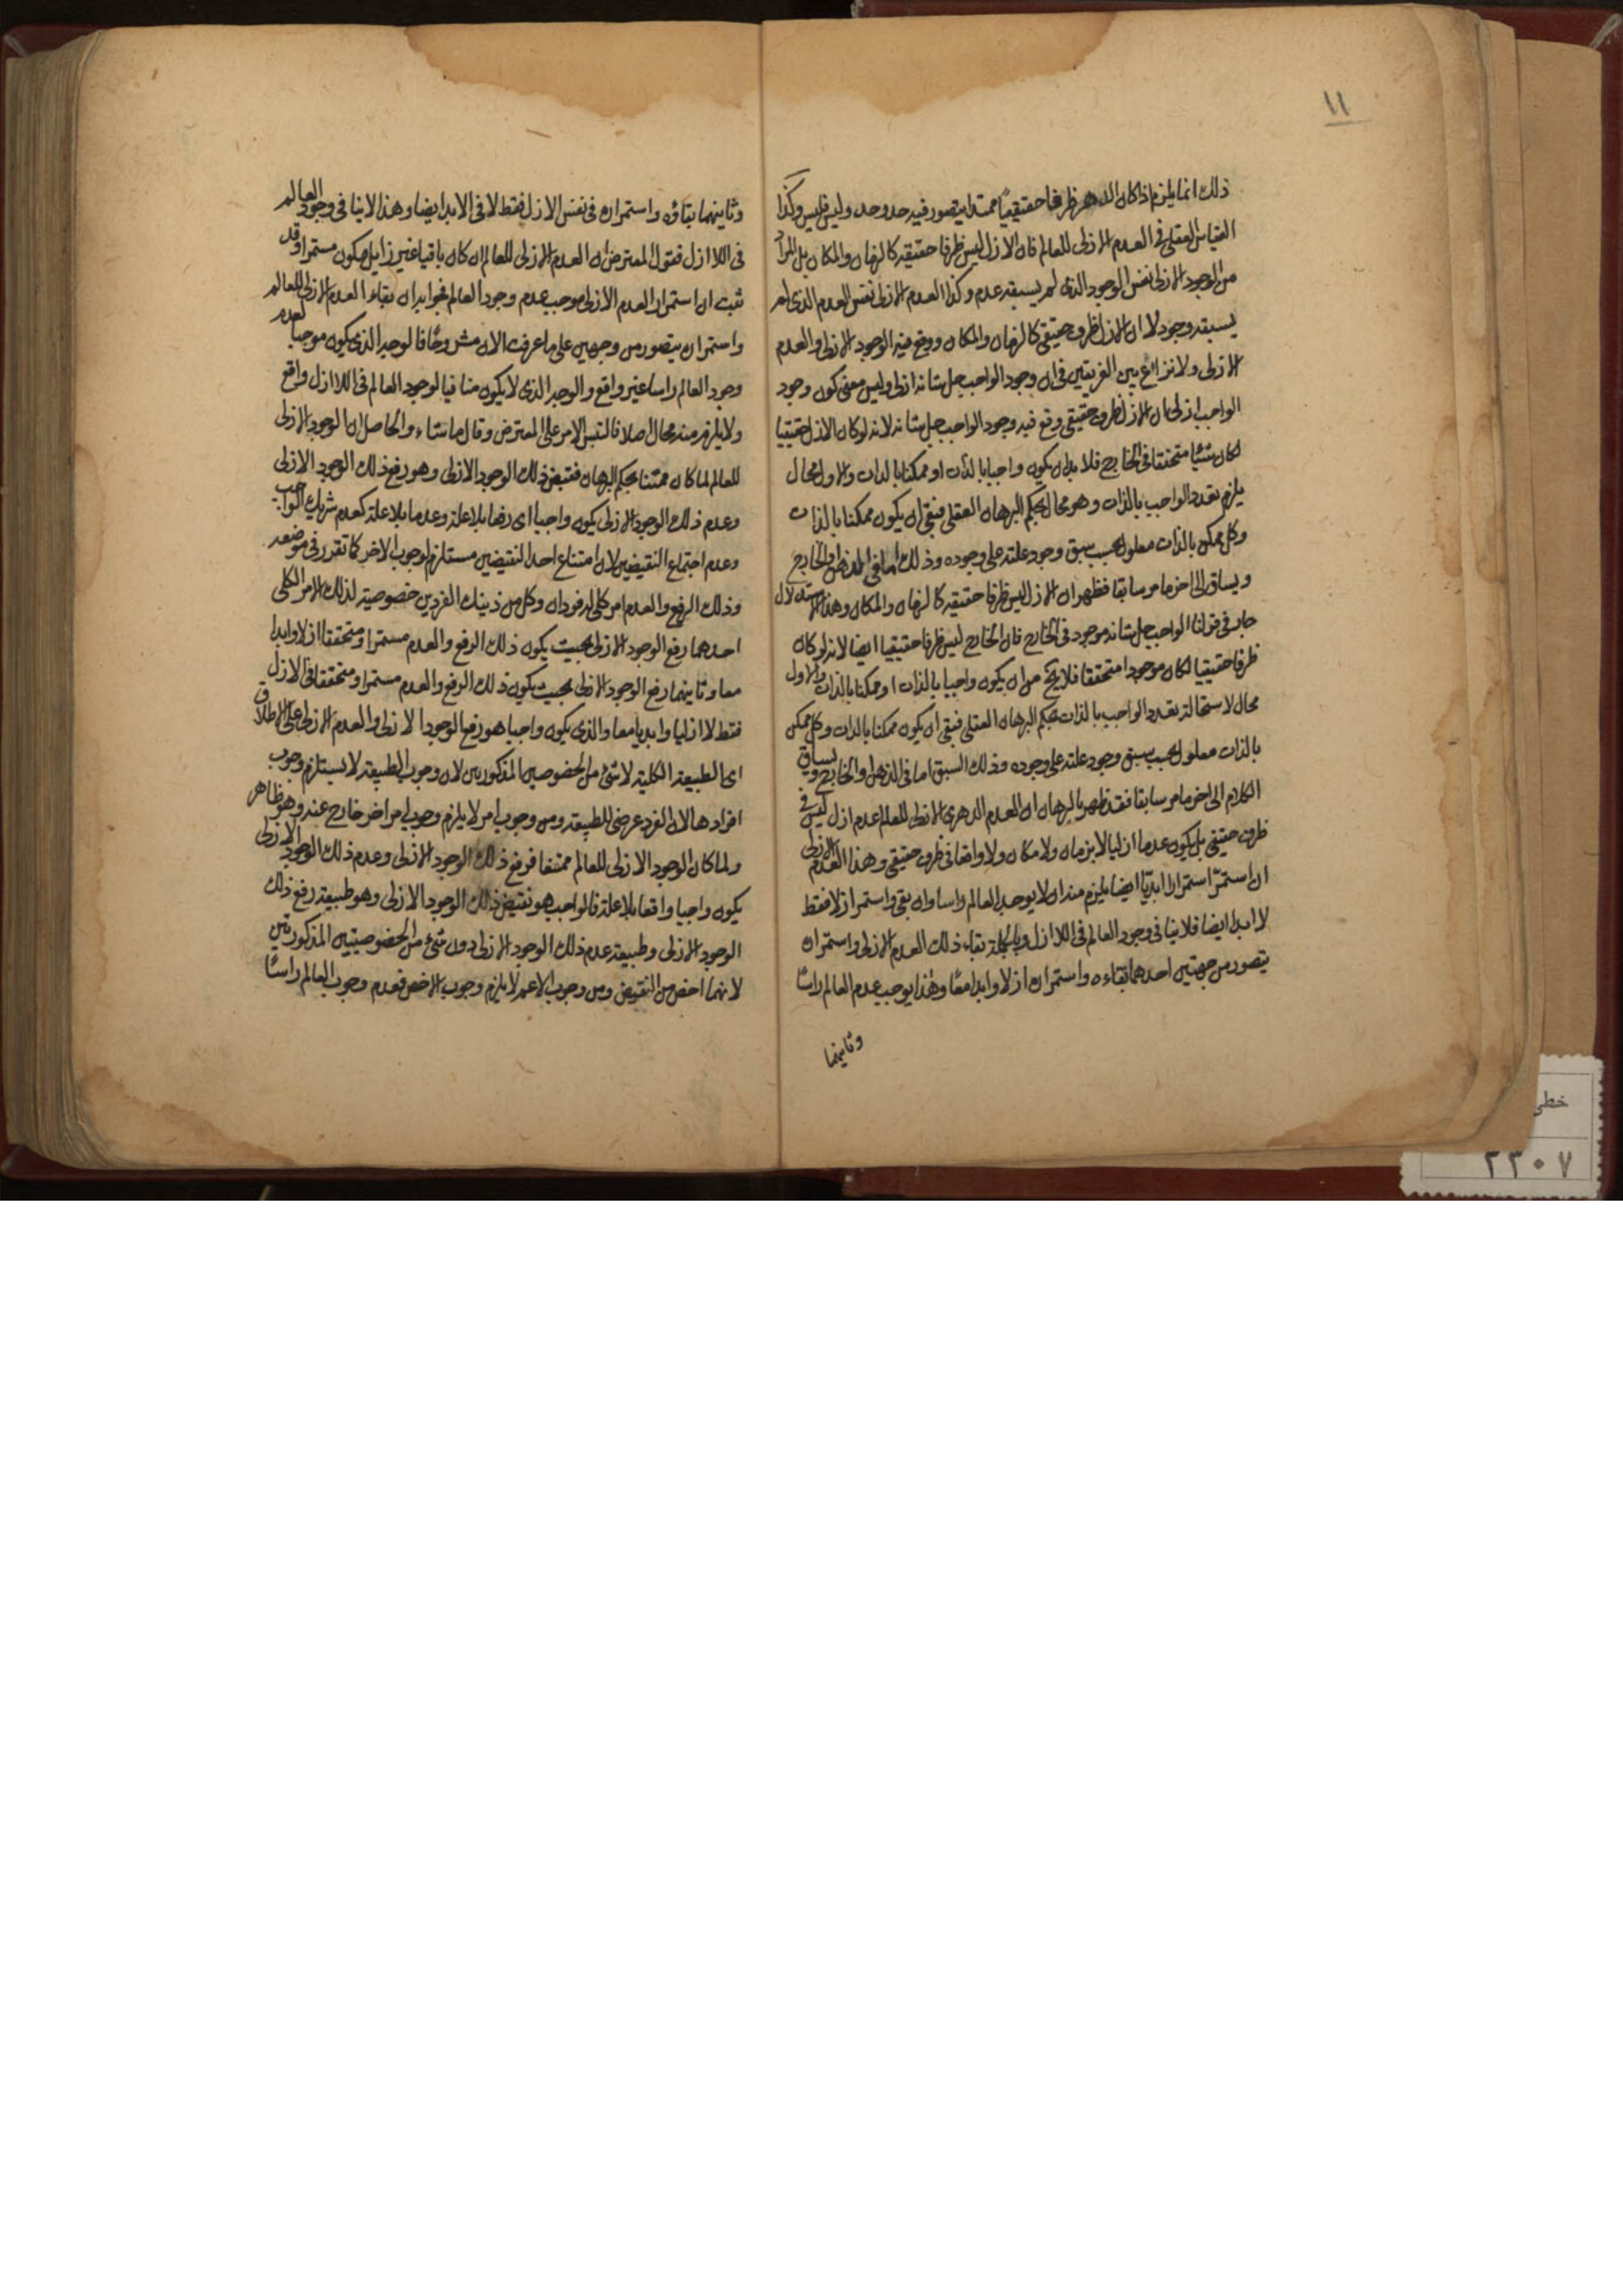 ١١
ذلك انما يلزم اذا كان الدهر ظرفا حقيقيا ممتدا يتصور فيه حد وحد وليس فليس وكذا
القياس العقلى فى العدم الازلى للعالم فان الازل ليس ظرفا حقيقيه كالزمان والمكان بل المراد
من الوجود الازلى نفس الوجود الذى لم يسبقه عدم وكذا العدم الازلى نفس العدم الذى لم
يسبقه وجود لا ان الازل ظرف حقيقى كالزمان والمكان ووقع فيه الوجود الازلى والعدم
الازلى ولا نزاع بين الفريقين فى ان وجود الواجب جل شانه ازلى وليس معنى كون وجود
الواجب ازلى ان الازل ظرف حقيقى وقع فيه وجود الواجب جل شانه لانه لو كان الازل حقيقيا
لكان شيئا متحققا فى الخارج فلا بد ان يكون واجبا بالذات او ممكنا بالذات والاول محال
يلزم تعدد الواجب بالذات وهو محال بحكم البرهان العقلى فبقى ان يكون ممكنا بالذات
وكل ممكن بالذات معلول يجب سبق وجود علته على وجوده وذلك اما فى الذهن او الخارج
ويساق الى اخر ما مر سابقا فظهر ان الازل ليس ظرفا حقيقيه كالزمان والمكان وهذا الاستدلال
جار فى قولنا الواجب جل شانه موجود فى الخارج فان الخارج ليس ظرفا حقيقيا ايضا لانه لو كان
ظرفا حقيقيا لكان موجودا متحققا فلا يخ من ان يكون واجبا بالذات او ممكنا بالذات والاول
محال لاستحالة تعدد الواجب بالذات بحكم البرهان العقلى فبقى ان يكون ممكنا بالذات وكل ممكن
بالذات معلول يجب سبق وجود علته على وجوده وذلك السبق اما فى الذهن او الخارج ويساق
الكلام الى اخر ما مر سابقا فقد ظهر بالبرهان ان العدم الدهرى الازلى للعالم عدم ازل ليس فى
ظرف حقيقى بل يكون عدما ازليا لا بزمان ولا مكان ولا واقعا فى ظرف حقيقى وهذا العدم الازلى
ان استمر استمرارا ابديا ايضا يلزم منه ان لا يوجد العالم راسا وان بقى واستمر ازلا فقط
لا ابدا ايضا فلا ينافى وجود العالم فى اللاازل وبالجملة بقاء ذلك العدم الازلى واستمراره
يتصور من جهتين احدهما بقاءه واستمراره ازلا وابدا معا وهذا يوجب عدم العالم راسا
وثانيهما
وثانيهما بقاؤه واستمراره فى نفس الازل فقط لا فى الابد ايضا وهذا لا ينافى وجود العالم
فى اللاازل فقول المعترض ان العدم الازلى للعالم ان كان باقيا غير زايل فيكون مستمرا وقد
ثبت ان استمرار العدم الازلى موجب عدم وجود العالم فجوابه ان بقاء العدم الازلى للعالم
واستمراره يتصور من وجهين على ما عرفت الان مشروحا فالوجه الذى يكون موجبا لعدم
وجود العالم راسا غير واقع والوجه الذى لا يكون منافيا لوجود العالم فى اللاازل واقع
ولا يلزم منه محال اصلا فالتبس الامر على المعترض وقال ما شاء والحاصل ان الوجود الازلى
للعالم لما كان ممتنعا بحكم البرهان فنقيض ذلك الوجود الازلى وهو رفع ذلك الوجود الازلى
وعدم ذلك الوجود الازلى يكون واجبا اى رفعا بلا علة وعدما بلا علة كعدم شريك الواجب
وعدم اجتماع النقيضين لان امتناع احد النقيضين مستلزم لوجوب الاخر كما تقرر فى موضعه
وذلك الرفع والعدم امر كلى له فردان وكل من ذينك الفردين خصوصية لذلك الامر الكلى
احدهما رفع الوجود الازلى بحيث يكون ذلك الرفع والعدم مستمرا ومتحققا ازلا وابدا
معا وثانيهما رفع الوجود الازلى بحيث يكون ذلك الرفع والعدم مستمرا ومتحققا فى الازل
فقط لا ازليا وابديا معا والذى يكون واجبا هو رفع الوجود الازلى والعدم الازلى على الاطلاق
اى الطبيعة الكلية لا شئ من الخصوصين المذكورين لان وجوب الطبيعة لا يستلزم وجوب
افرادها لان الفرد عرضى للطبيعة ومن وجوب امر لا يلزم وجوب امر اخر خارج عنه وهو ظاهر
ولما كان الوجود الازلى للعالم ممتنعا فرفع ذلك الوجود الازلى وعدم ذلك الوجود الازلى
يكون واجبا واقعا بلا علة فالواجب هو نقيض ذلك الوجود الازلى وهو طبيعة رفع ذلك
الوجود الازلى وطبيعة عدم ذلك الوجود الازلى دون شئ من الخصوصيتين المذكورتين
لانهما اخص من النقيض ومن وجوب الاعم لا يلزم وجوب الاخص فعدم وجوب العالم راسا
خطى
٢٣٠٧